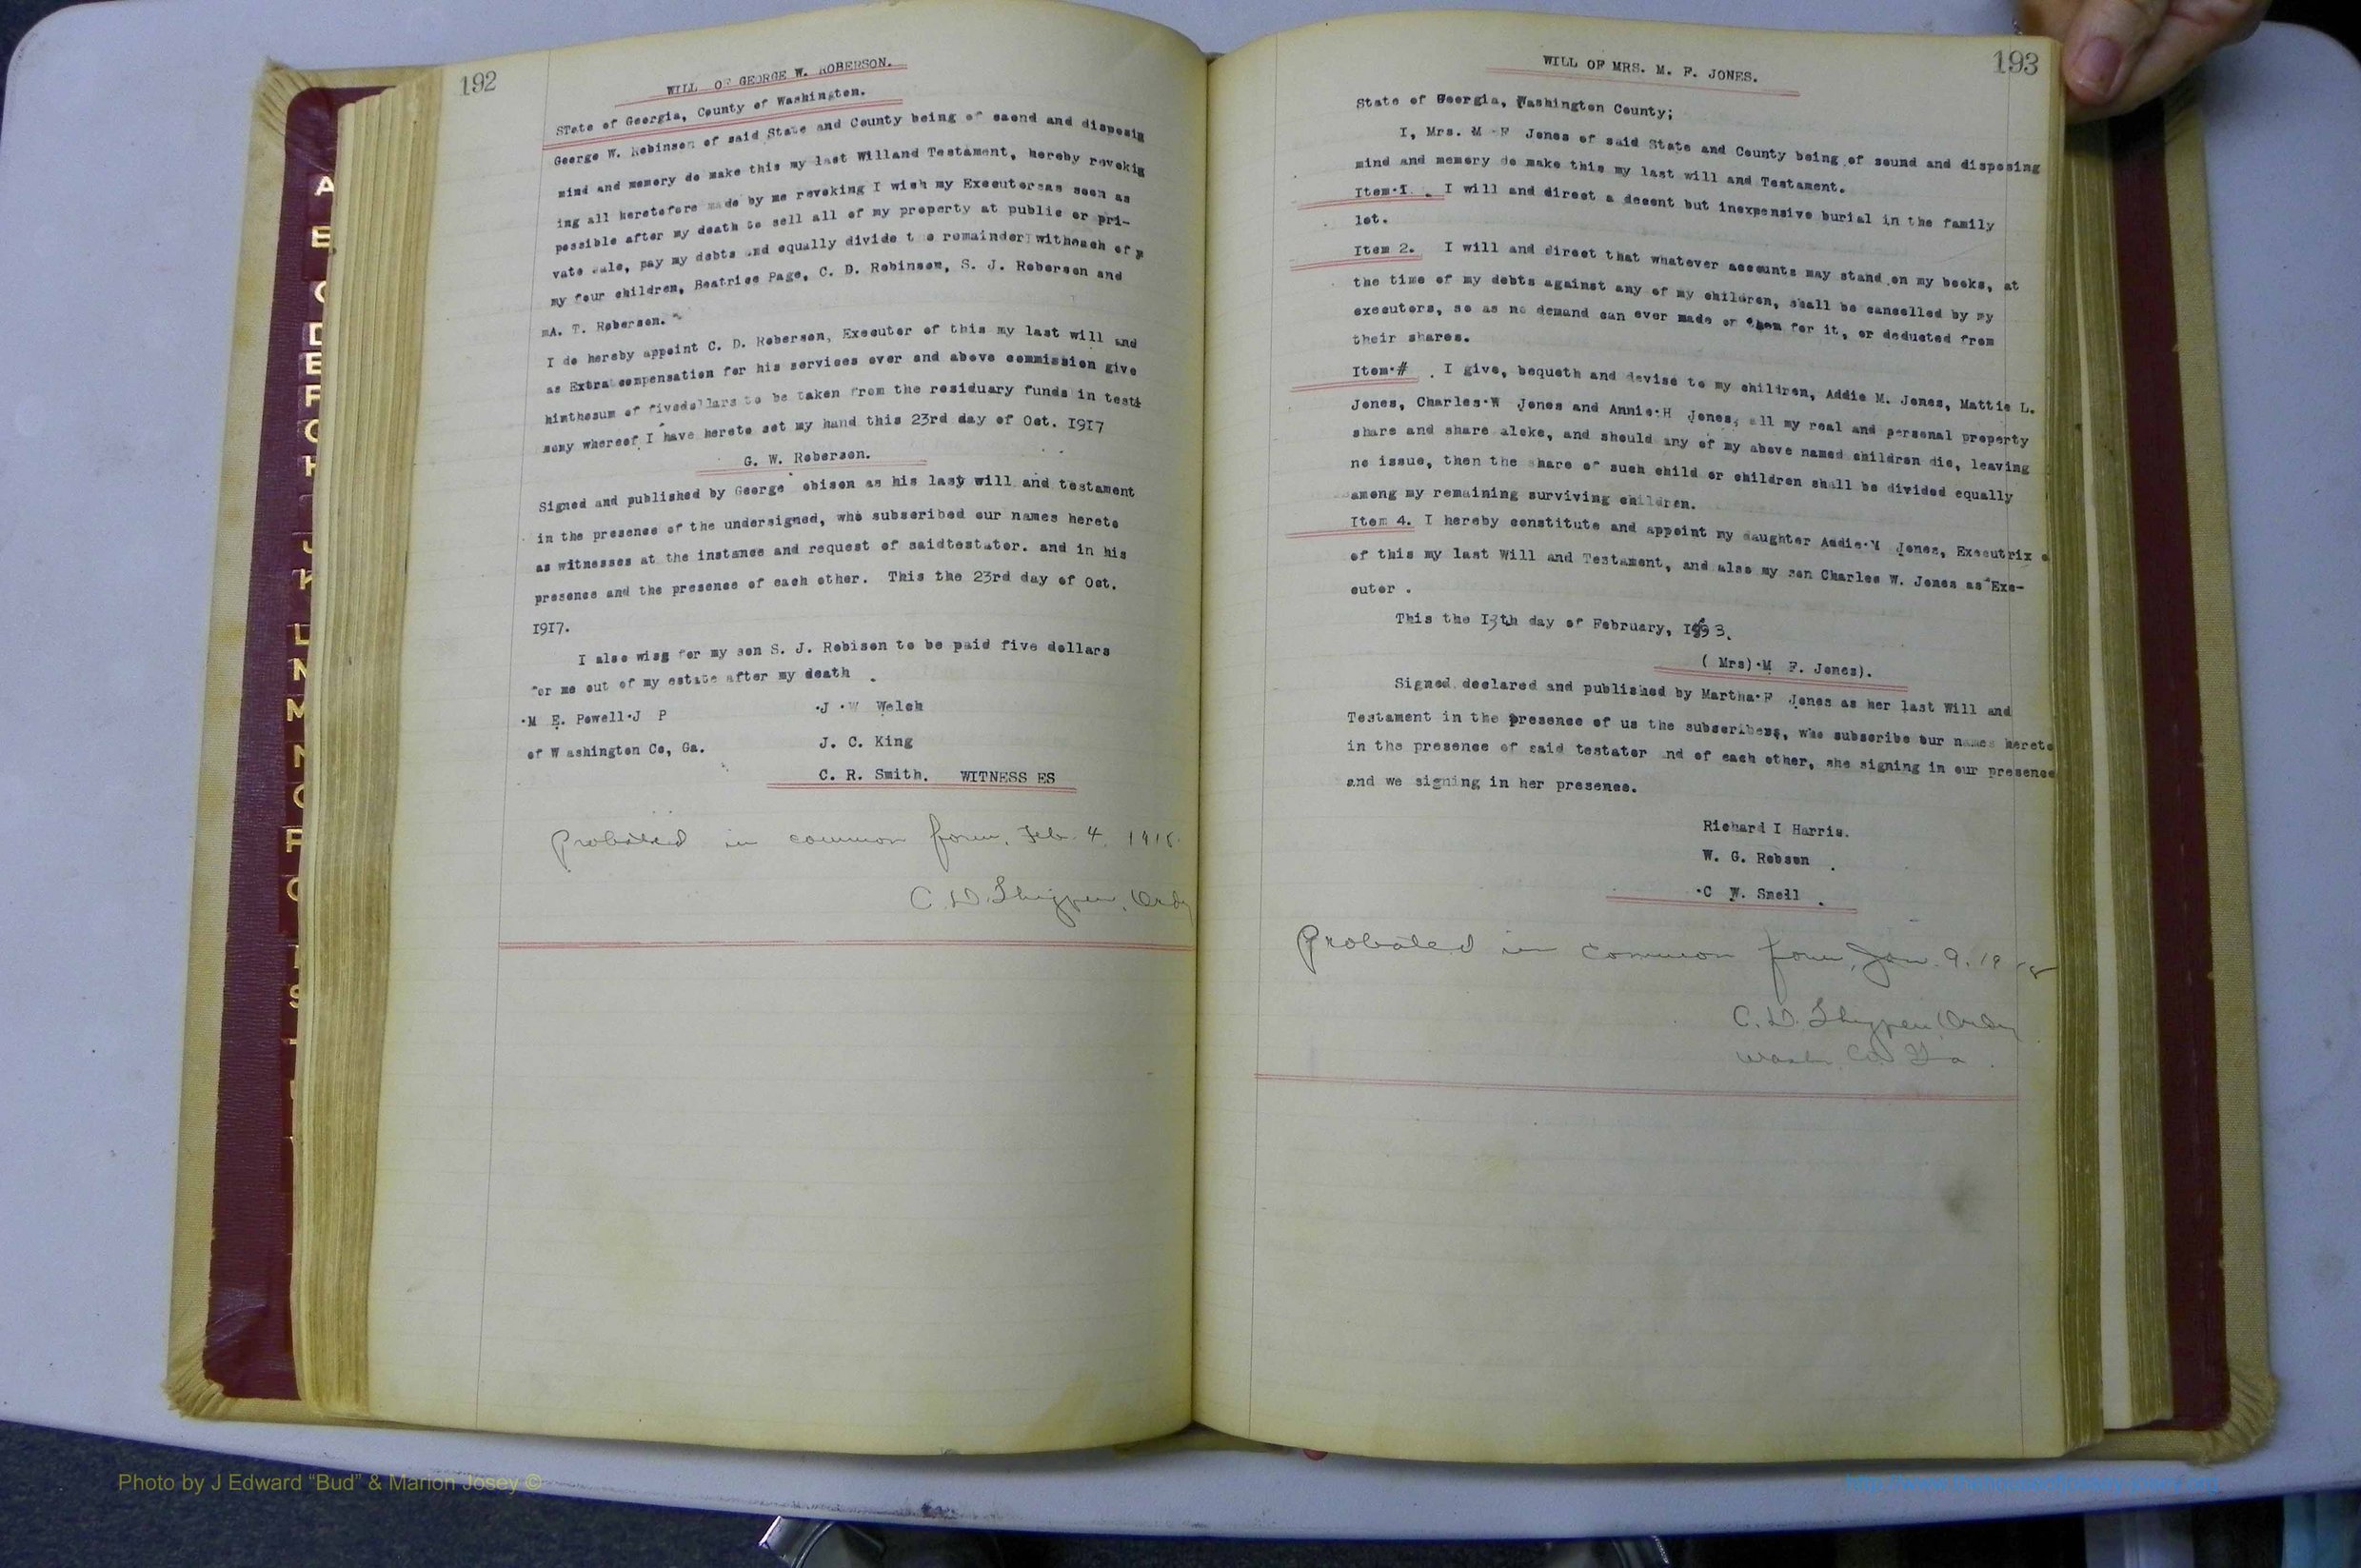 192
WILL OF GEORGE W. ROBERSON.
STate of Georgia, County of Washington.
George W. Robinson of said State and County being of saond and disposig
mind and memory do make this my last Willand Testament, hereby revokig
ing all heretofore made by me revoking I wish my Executorsas soon as
possible after my death to sell all of my property at public or pri-
vate sale, pay my debts and equally divide the remainder witheach of
my four children, Beatrice Page, C. D. Robinson, S. J. Roberson and
mA. T. Roberson.
I do hereby appoint C. D. Roberson, Executor of this my last will and
as Extra compensation for his services over and above commission give
himthesum of fivedollars to be taken from the residuary funds in testi
mony whereof I have hereto set my hand this 23rd day of Oct. I9I7
G. W. Roberson.
Signed and published by George obison as his last will and testament
in the presence of the undersigned, who subscribed our names hereto
as witnesses at the instance and request of saidtestator. and in his
presence and the presence of each other. This the 23rd day of Oct.
I9I7.
I also wisg for my son S. J. Robison to be paid five dollars
for me out of my estate after my death .
M E. Powell J P
J W Welch
of W ashington Co, Ga.
J. C. King
C. R. Smith. WITNESS ES
Probated in common form, Feb. 4, 1918.
C. D. Thigpen, Ordy
193
WILL OF MRS. M. F. JONES.
State of Georgia, Washington County;
I, Mrs. M F Jones of said State and County being of sound and disposing
mind and memory do make this my last will and Testament.
Item I . I will and direct a decent but inexpensive burial in the family
lot.
Item 2. I will and direct that whatever accounts may stand on my books, at
the time of my debts against any of my children, shall be cancelled by my
executors, so as no demand can ever made on them for it, or deducted from
their shares.
Item # . I give, bequeth and devise to my children, Addie M. Jones, Mattie L.
Jones, Charles W Jones and Annie H Jones, all my real and personal property
share and share aleke, and should any of my above named children die, leaving
no issue, then the share of such child or children shall be divided equally
among my remaining surviving children.
Item 4. I hereby constitute and appoint my daughter Addie M Jones, Executrix
of this my last Will and Testament, and also my son Charles W. Jones as Exe-
cutor .
This the I3th day of February,
( Mrs) M F. Jones).
Signed declared and published by Martha F Jones as her last Will and
Testament in the presence of us the subscribers, who subscribe our names hereto
in the presence of said testator and of each other, she signing in our presence
and we signing in her presence.
Richard I Harris.
W. G. Robson .
C W. Snell .
Probated in common form, Jan. 9. 1918
C. D. Thigpen Ordy
Wash. Co. Ga.
A
B
C
D
E
F
G
H
J
K
L
M
N
O
P
Photo by J Edward “Bud” & Marion Josey ©